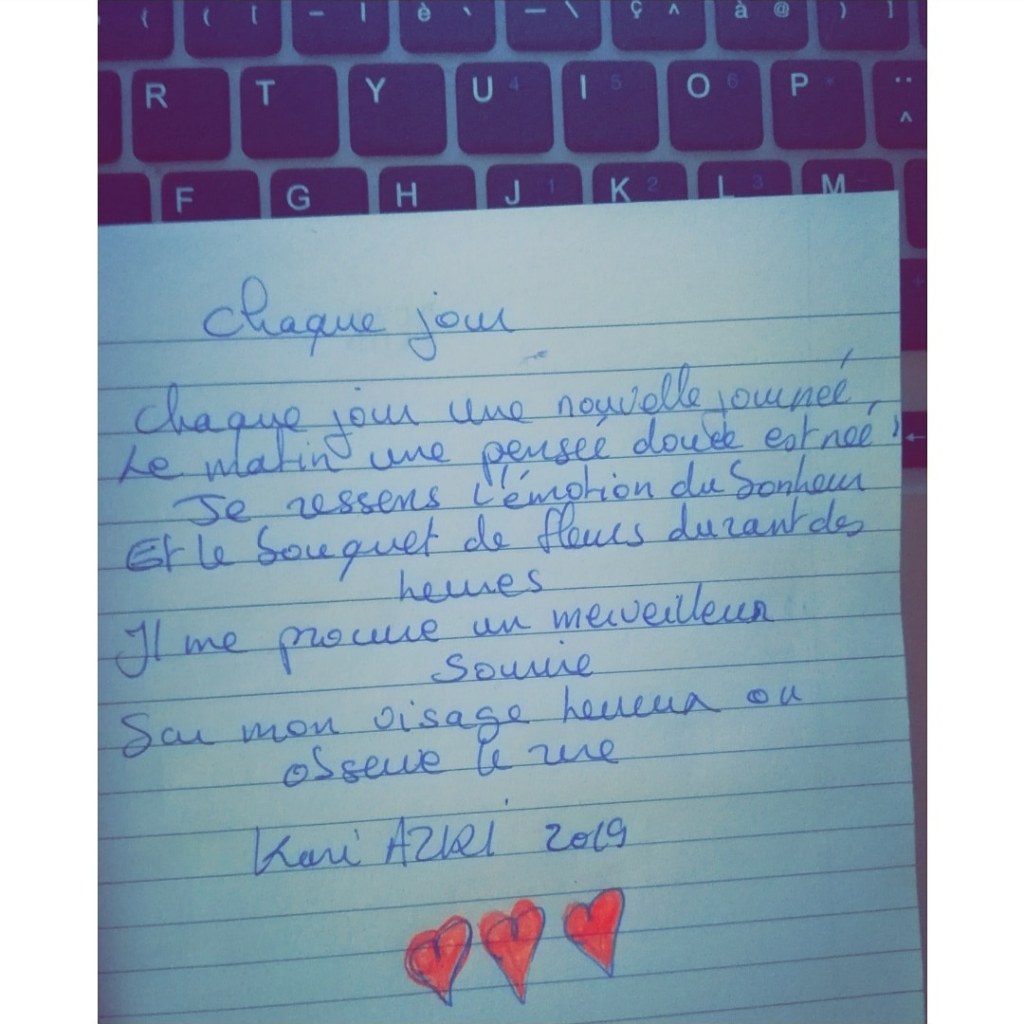 ( ( [ - | è ` — \ ç ^ à @ ) ]
R T Y U 4 I 5 O 6 P * ¨ ^
F G H J 1 K 2 L 3 M
Chaque jour
Chaque jour une nouvelle journée,
Le matin une pensée est née !
Je ressens l'émotion du bonheur
Et le bouquet de fleurs durant des
heures
Il me procure un merveilleux
Sourire
Sur mon visage heureux ou
observe le rire
Kari 2019